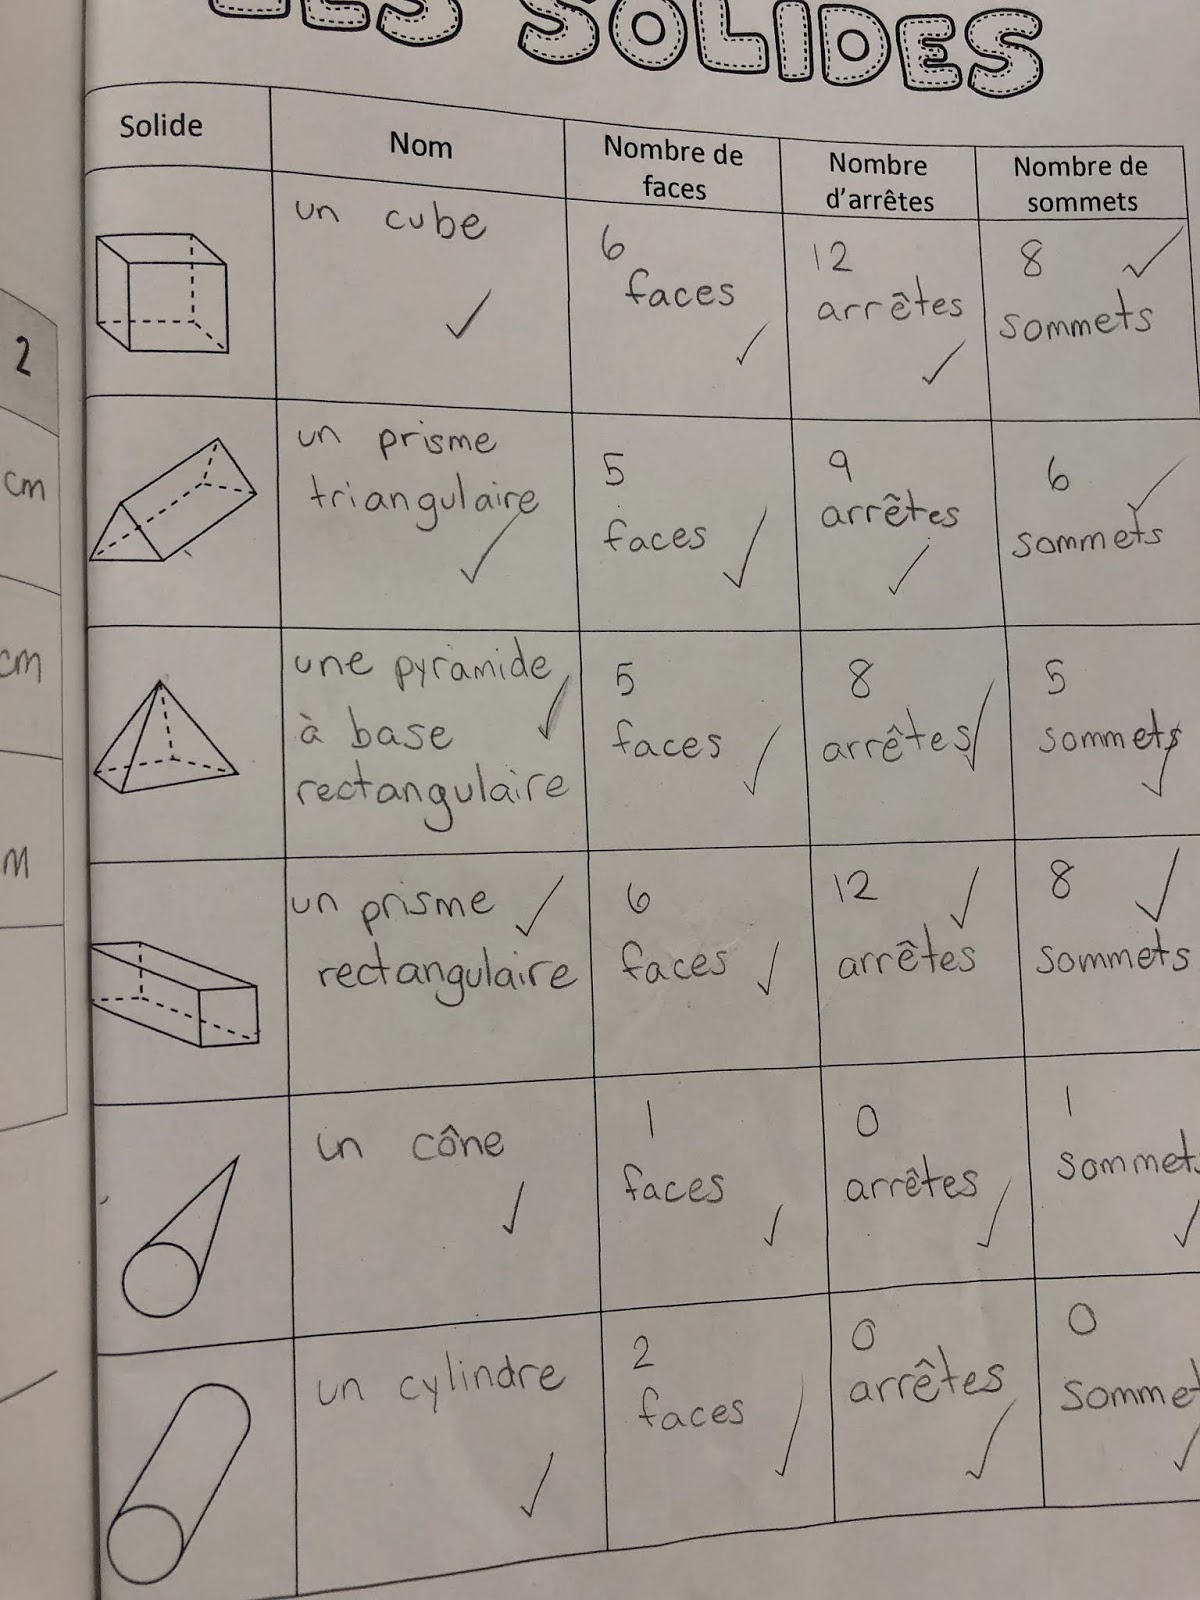 LES SOLIDES
Solide
Nom
Nombre de
faces
Nombre
d'arrêtes
Nombre de
sommets
un cube
6
faces
12
arrêtes
8
sommets
un prisme
triangulaire
5
faces
9
arrêtes
6
sommets
une pyramide
à base
rectangulaire
5
faces
8
arrêtes
5
sommets
un prisme
rectangulaire
6
faces
12
arrêtes
8
sommets
un cône
1
faces
0
arrêtes
1
sommets
un cylindre
2
faces
0
arrêtes
0
sommet
2
cm
cm
m